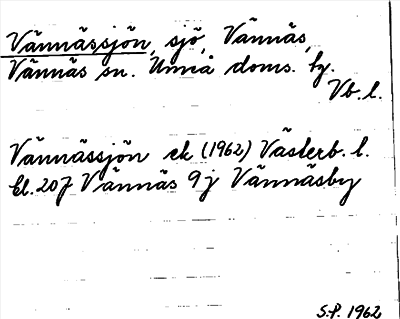 Vännässjön, sjö, Vännäs,
Vännäs sn. Umeå doms. hg.
Vb. l.
Vännässjön ek (1962) Västerb. l.
bl. 207 Vännäs 9 j Vännäsby
S.P. 1962